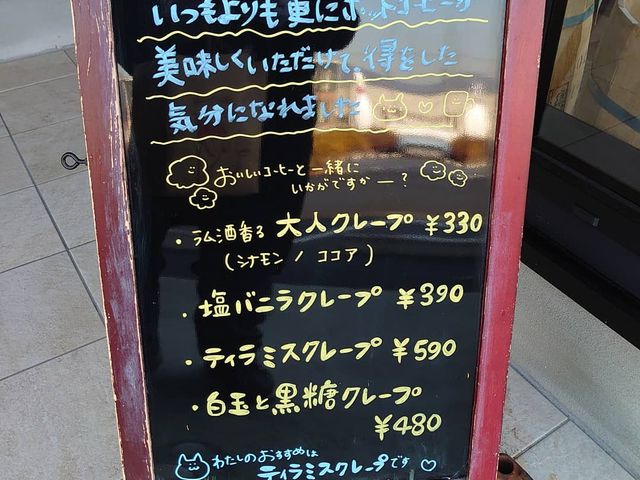 いつもよりも更にホットコーヒーが
美味しくいただけて、得をした
気分になれました
おいしいコーヒーと一緒に
いかがですかー?
・ラム酒香る 大人クレープ ¥330
(シナモン / ココア)
・塩バニラクレープ ¥390
・ティラミスクレープ ¥590
・白玉と黒糖クレープ
¥480
わたしのおすすめは
ティラミスクレープです